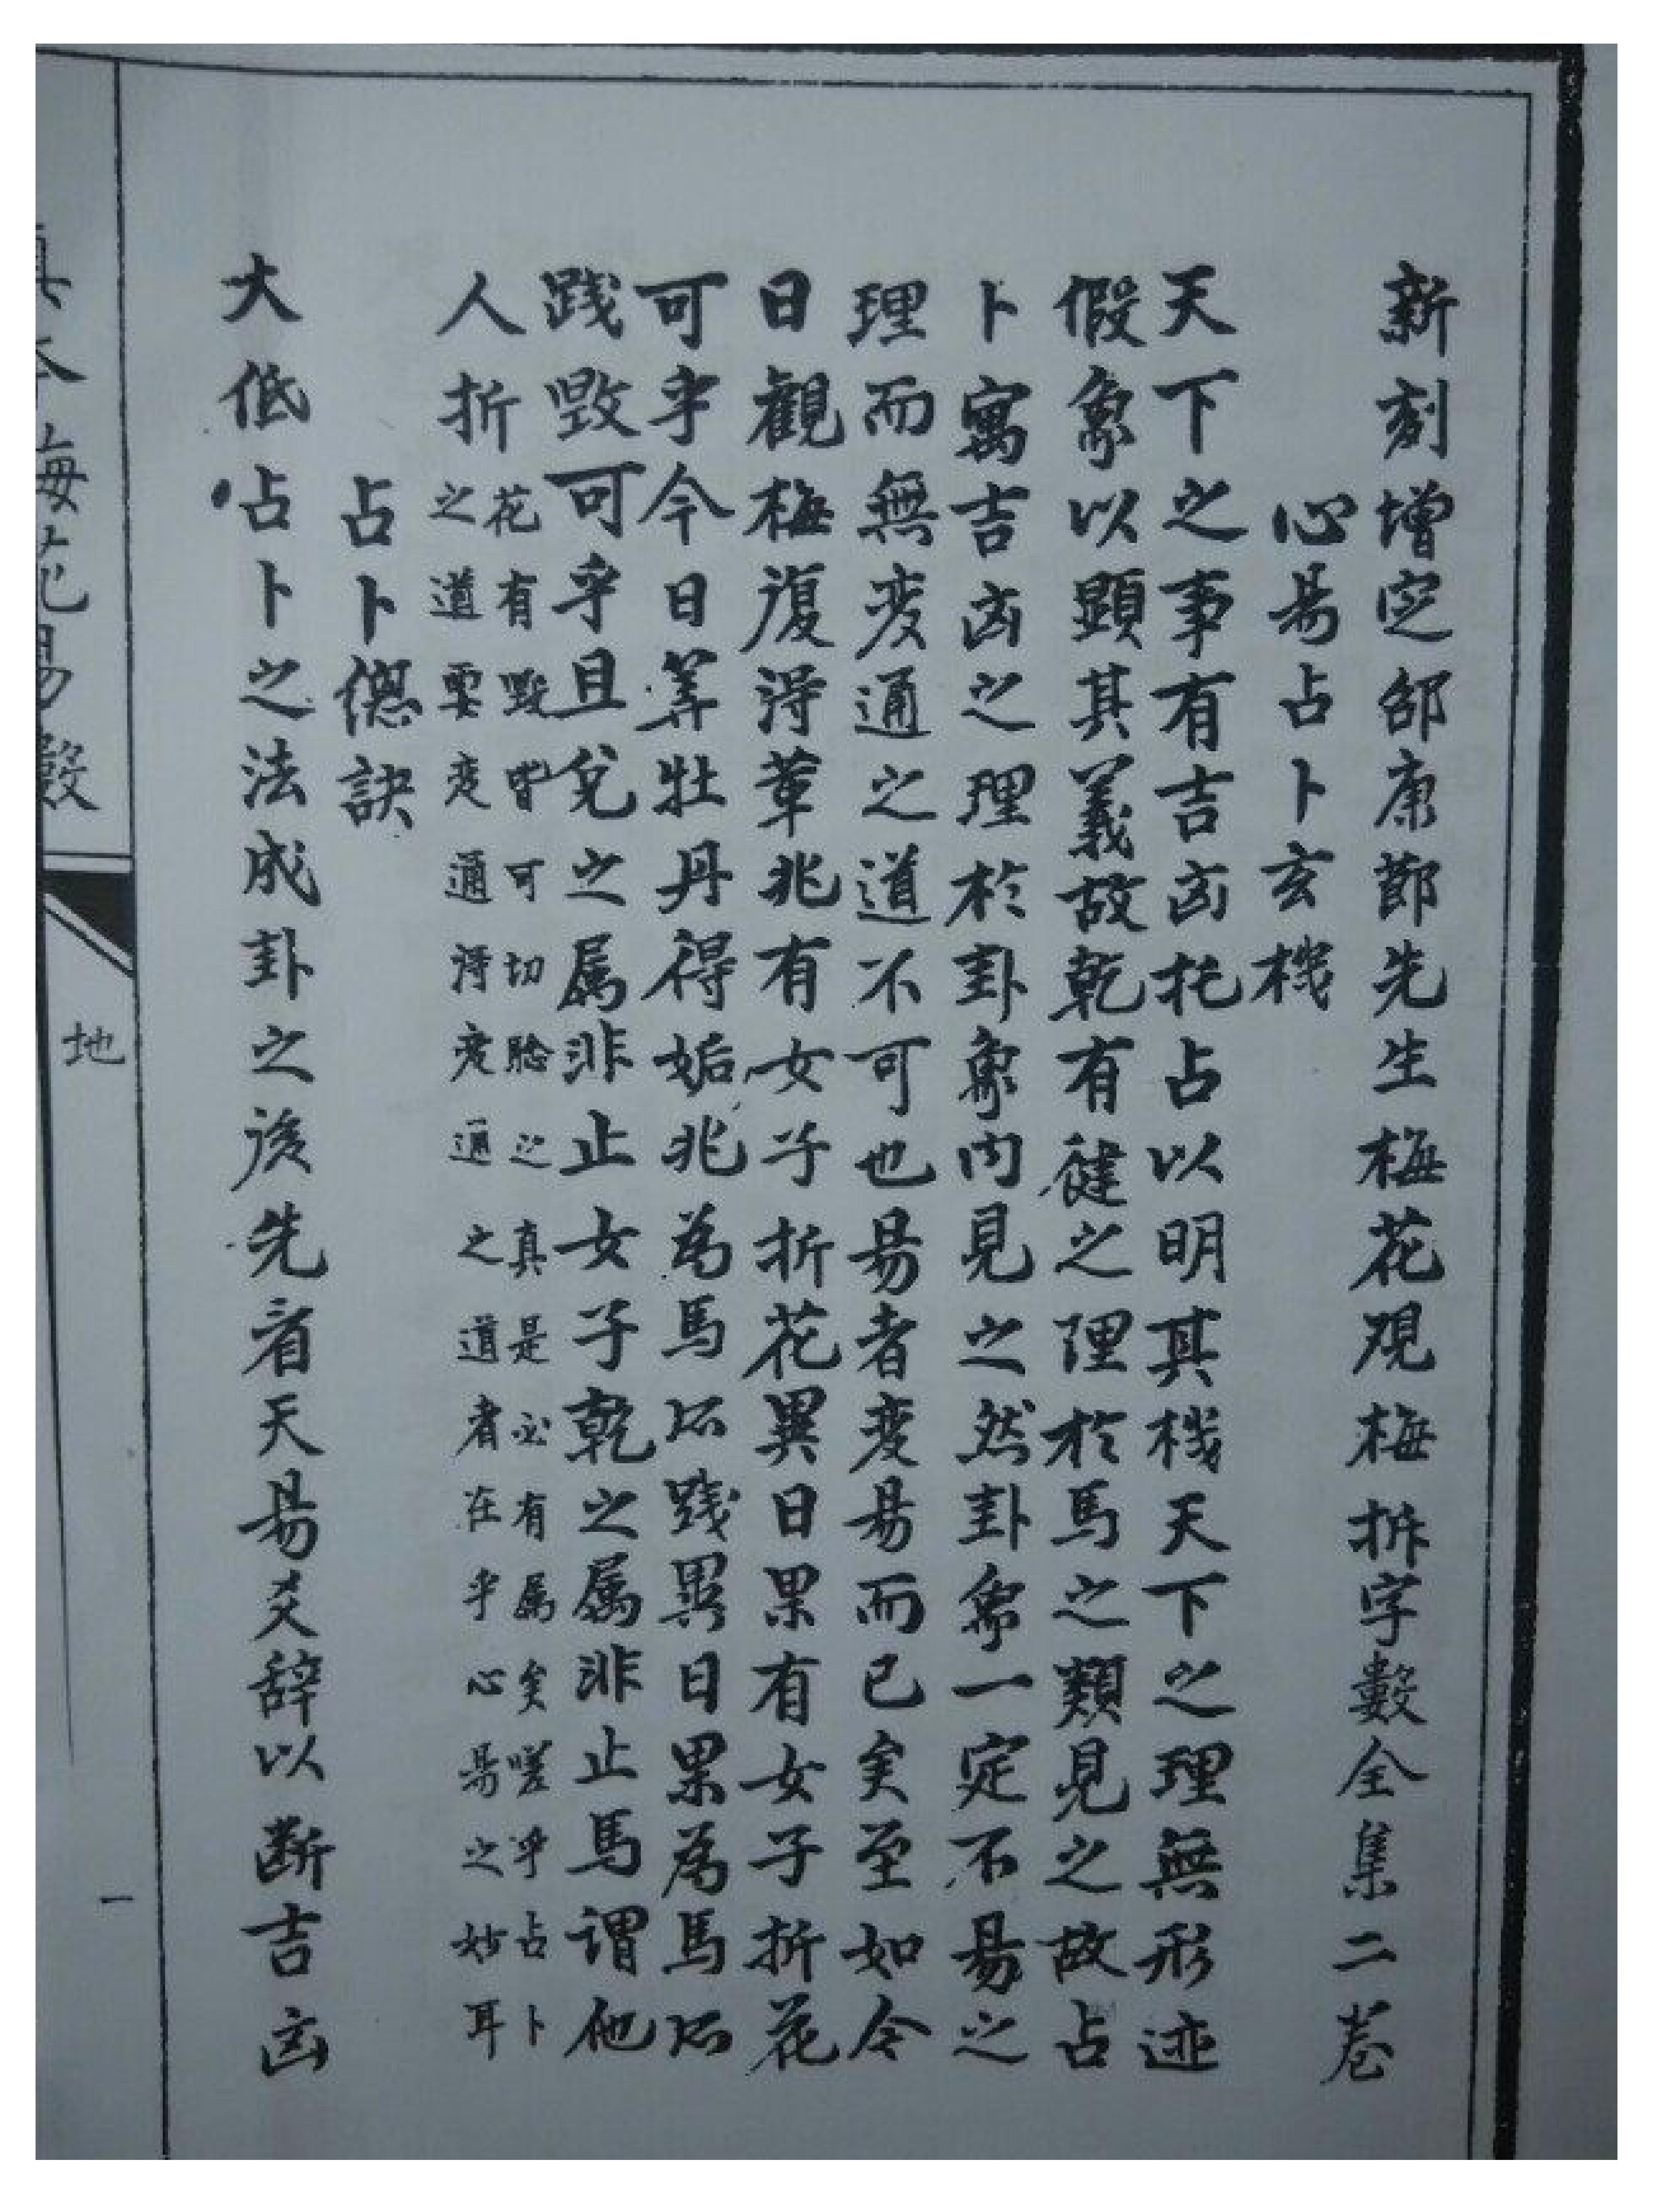 新刻增定邵康節先生梅花观梅拆字數全集二卷
心易占卜玄機
天下之事有吉凶托占以明其機天下之理無形迹
假象以顯其義故乾有健之理於馬之類見之故占
卜寓吉凶之理於卦象内見之然卦象一定不易之
理而無变通之道不可也易者变易而已矣至如今
日觀梅復得革兆有女子折花異日果有女子折花
可乎今日算牡丹得姤兆為馬所践異日果為馬所
践毁可乎且兌之属非止女子乾之属非止馬謂他
人折
花有毁皆可切驗之真是必有属矣嗟乎占卜
之道要变通得变通之道者在乎心易之妙耳
占卜總訣
大低占卜之法成卦之後先看天易爻辞以断吉凶
真本梅花易數
地
一